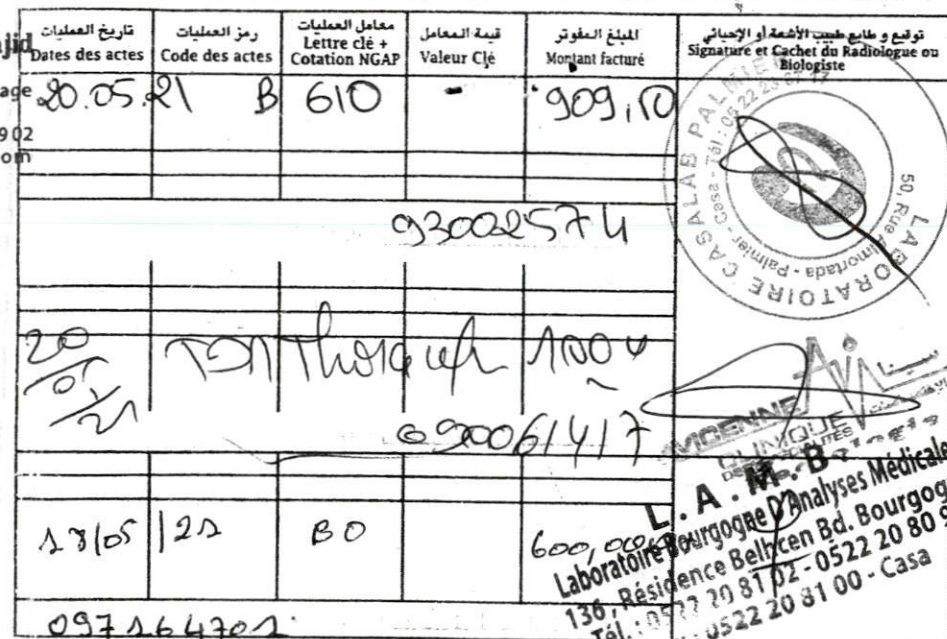 تاريخ العمليات
Dates des actes
رمز العمليات
Code des actes
معامل العمليات
Lettre clé +
Cotation NGAP
قيمة المعامل
Valeur Clé
المبلغ المفوتر
Montant facturé
توقيع و طابع طبيب الأشعة أو الإحيائي
Signature et Cachet du Radiologue ou
Biologiste
20.05.21 B 610 - 909,10
LABORATOIRE CASALAB PALMIER
50, Rue Almortada - Palmier - Casa - Tél : 05 22
93002574
20/05/21 TDM Thoracique
690061417
CLINIQUE
18/05/21 B0 600,00
L.A.M.B
Laboratoire Bourgogne D'Analyses Médicale
136, Résidence Belhcen Bd. Bourgog
Tél. : 0522 20 81 02 - 0522 20 80 9
0522 20 81 00 - Casa
097164701